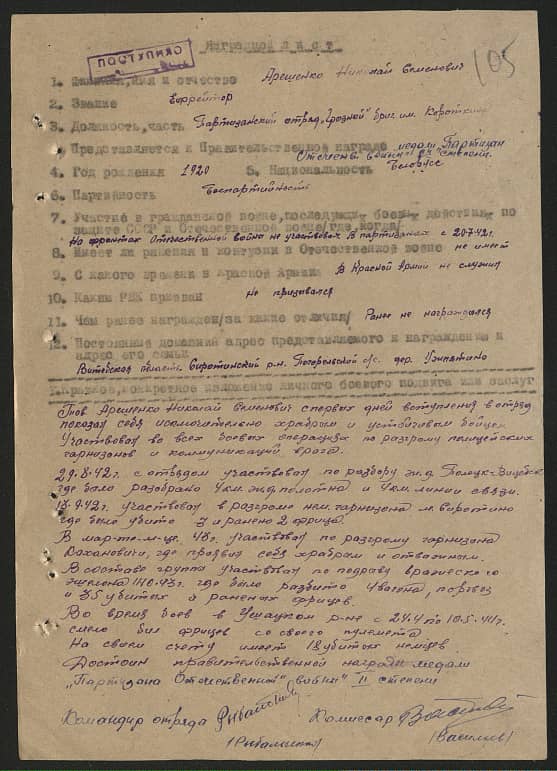 ПОСТУПИЛО
Наградной лист
105
1. Фамилия, имя и отчество Арещенко Николай Семенович
2. Звание Ефрейтор
3. Должность, часть Партизанский отряд "Грозный" бриг. им. Короткина
Представляется к Правительственной награде медаль "Партизан
Отечеств. войны" II степени.
4. Год рождения 1920 5. Национальность Белорусс
6. Партийность Беспартийность
7. Участие в гражданской войне, последующих боевых действиях по
защите СССР и Отечественной войне/где, когда/
На фронтах Отечественной войны не участвовал В партизанах с 20.7.42г.
8. Имеет ли ранения и контузии в Отечественной войне не имеет
9. С какого времени в Красной Армии В Красной Армии не служил
10. Каким РВК призван Не призывался
11. Чем ранее награжден/за какие отличия/ Ранее не награждался
12. Постоянный домашний адрес представляемого к награждению и
адрес его семьи
Витебская область Сиротинский р-н. с/с. дер.
Краткое, конкретное изложение личного боевого подвига или заслуг
Тов Арещенко Николай Семенович с первых дней вступления в отряд
показал себя исключительно храбрым и устойчивым бойцом
Участвовал во всех боевых операциях по разгрому полицейских
гарнизонов и коммуникаций врага.
29.8.42г. с отрядом участвовал по разбору ж.д Полоцк-Витебск
где было разобрано 4км. ж.д полотна и 4км. линии связи.
18.9.42г. участвовал в разгроме нем. гарнизона м. Сиротино
где было убито 3 и ранено 2 фрица.
В мар-те м-це 43г участвовал по разгрому гарнизона
Дохановичи, где проявил себя храбрым и отважным.
В составе группы участвовал по подрыву вражеского
эшелона 43г. где было разбито 4 вагона, паровоз
и 35 убитых и раненых фрицев.
Во время боев в Ушацком р-не с 24.4 по 10.5.44г.
смело бил фрицев со своего пулемета
На своем счету имеет 18 убитых немцев.
Достоин правительственной награды медали
"Партизана Отечественной войны" II степени
Командир отряда Комиссар
(Василев)